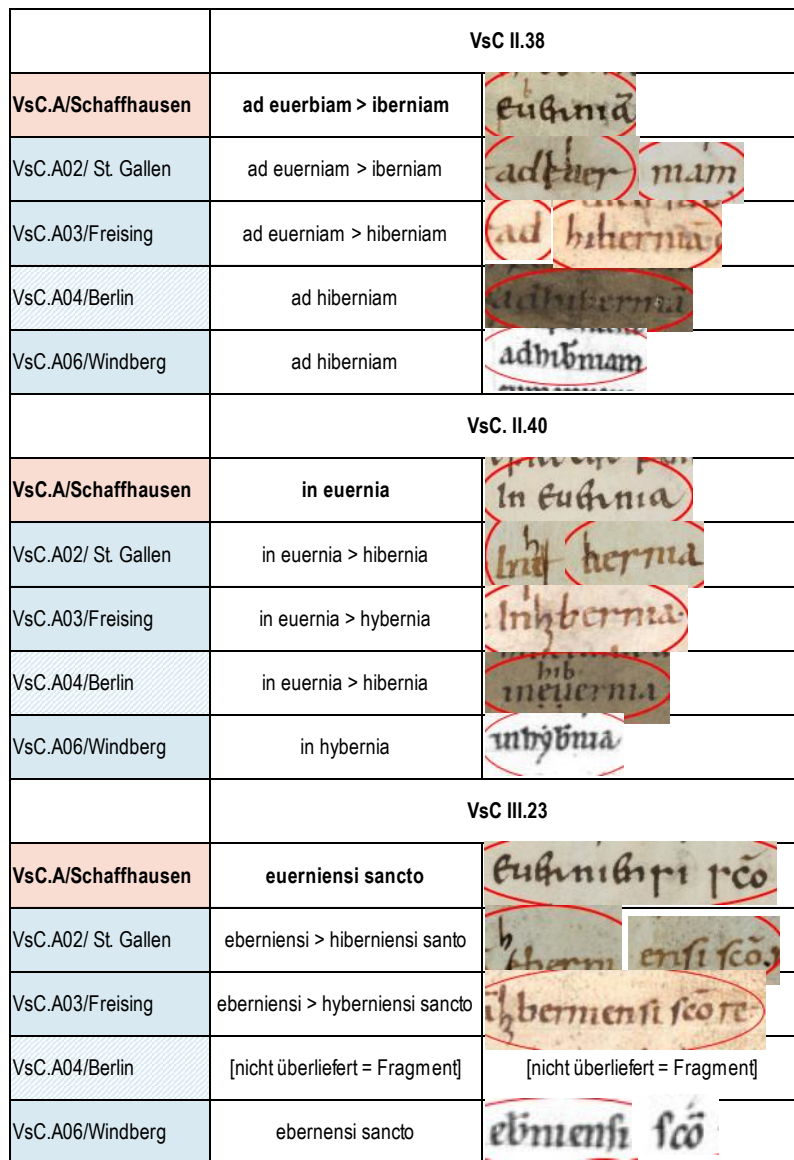 VsC II.38
VsC.A/Schaffhausen ad euerbiam > iberniam euerniā
VsC.A02/ St. Gallen ad euerniam > iberniam
VsC.A03/Freising ad euerniam > hiberniam ad hiberniā
VsC.A04/Berlin ad hiberniam adhiberniā
VsC.A06/Windberg ad hiberniam adhib̄niam
VsC. II.40
VsC.A/Schaffhausen in euernia In euernia
VsC.A02/ St. Gallen in euernia > hibernia
VsC.A03/Freising in euernia > hybernia Inhybernia
VsC.A04/Berlin in euernia > hibernia hib
ineuernia
VsC.A06/Windberg in hybernia inhẏb̄nia
VsC III.23
VsC.A/Schaffhausen euerniensi sancto euerniensi sc̄o
VsC.A02/ St. Gallen eberniensi > hiberniensi santo ensi sc̄o
VsC.A03/Freising eberniensi > hyberniensi sancto hyberniensi sc̄o re
VsC.A04/Berlin [nicht überliefert = Fragment] [nicht überliefert = Fragment]
VsC.A06/Windberg ebernensi sancto eb̄niensi sc̄o